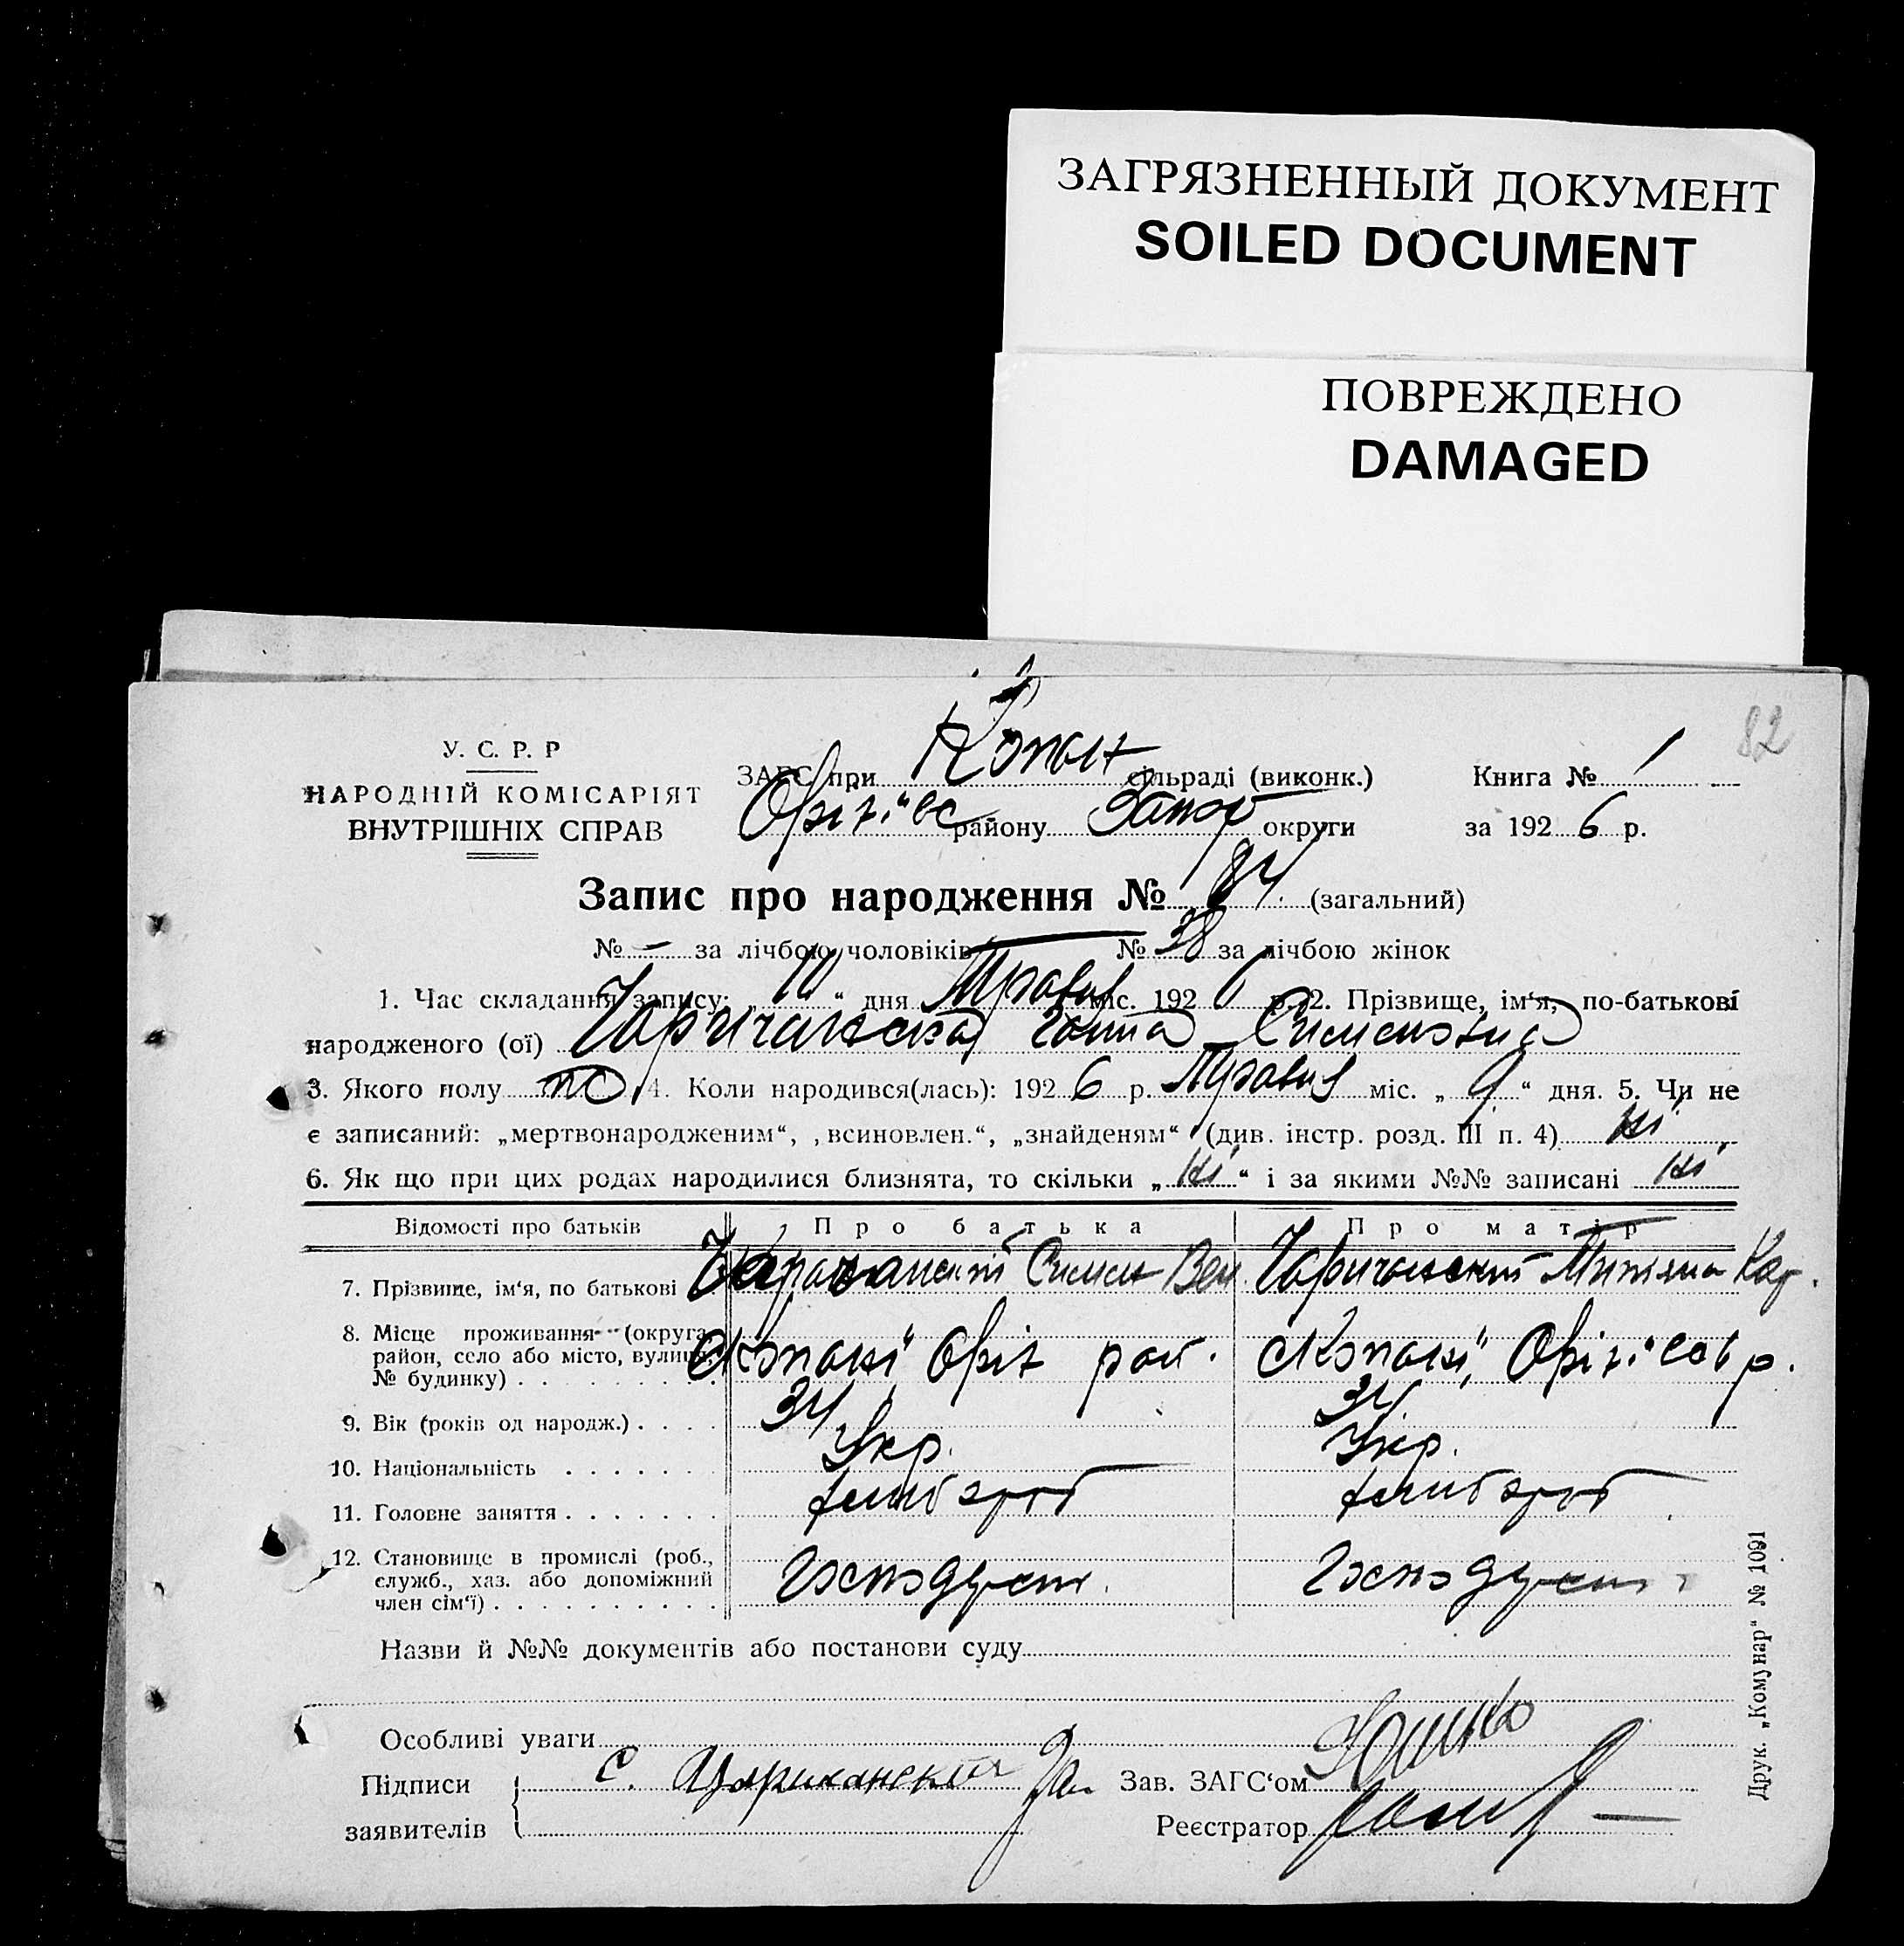 ЗАГРЯЗНЕННЫЙ ДОКУМЕНТ
SOILED DOCUMENT
ПОВРЕЖДЕНО
DAMAGED
82
У. С. Р. Р
НАРОДНІЙ КОМІСАРІЯТ
ВНУТРІШНІХ СПРАВ
ЗАГС при Копан сільраді (виконк.)
Книга № 1
Оріхівс району Запор округи
за 1926 р.
Запис про народження № 84 (загальний)
№ – за лічбою чоловіків № 38 за лічбою жінок
1. Час складання запису: „10“ дня Травня міс. 1926 р. 2. Прізвище, ім‘я, по-батькові
народженого (ої) Чаричанська Ганна Сименовна
3. Якого полу 4. Коли народився(лась): 1926 р. Травня міс. „9“ дня. 5. Чи не
є записаний: „мертвонародженим“, „всиновлен.“, „знайденям“ (див. інстр. розд. III п. 4) ні
6. Як що при цих родах народилися близнята, то скільки „ні“ і за якими №№ записані ні
Відомості про батьків Про батька Про матір
7. Прізвище, ім‘я, по батькові Чаричанский Симен Чаричанский
8. Місце проживання (округа, район, село або місто, вулиця, № будинку) Копані Оріх рай. Копані, Оріхівсь р.
9. Вік (років од народж.) 34 34
10. Національність Укр. Укр.
11. Головне заняття хлібороб хлібороб
12. Становище в промислі (роб., служб., хаз. або допоміжний член сім‘ї)
Назви й №№ документів або постанови суду
Особливі уваги
Підписи С. Цариканский Зав. ЗАГС‘ом
заявителів Реєстратор
Друк. „Комунар“ № 1091